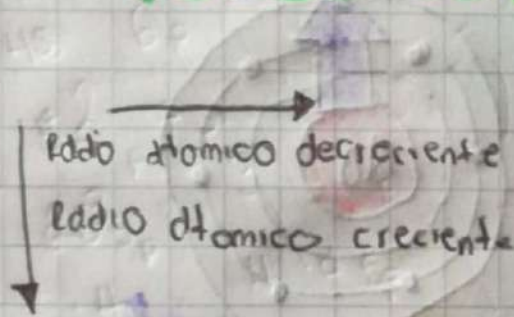 Radio atomico decreciente
Radio atomico creciente